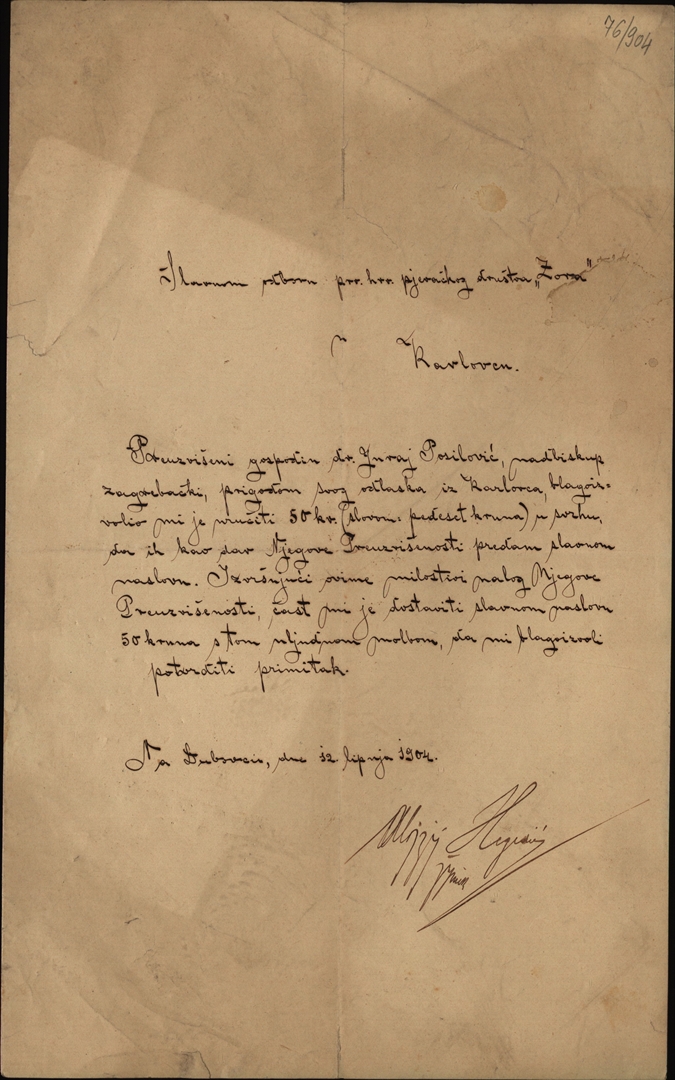 76/904
Slavnom odboru prv. hrv. pjevačkog društva „Zora"
u
Karlovcu.
Preuzvišeni gospodin dr. Juraj Posilović, nadbiskup
zagrebački, prigodom svog odlaska iz Karlovca, blagoiz-
volio mi je uručiti 50 kr. (slovom: pedeset kruna) u svrhu,
da ih kao dar Njegove Preuzvišenosti predam slavnom
naslovu. Izvršujući ovime milostivi nalog Njegove
Preuzvišenosti, čast mi je dostaviti slavnom naslovu
50 kruna s tom uljudnom molbom, da mi blagoizvoli
potvrditi primitak.
Na Dubovcu, dne 12. lipnja 1904.
Alojzij Hegedić
župnik